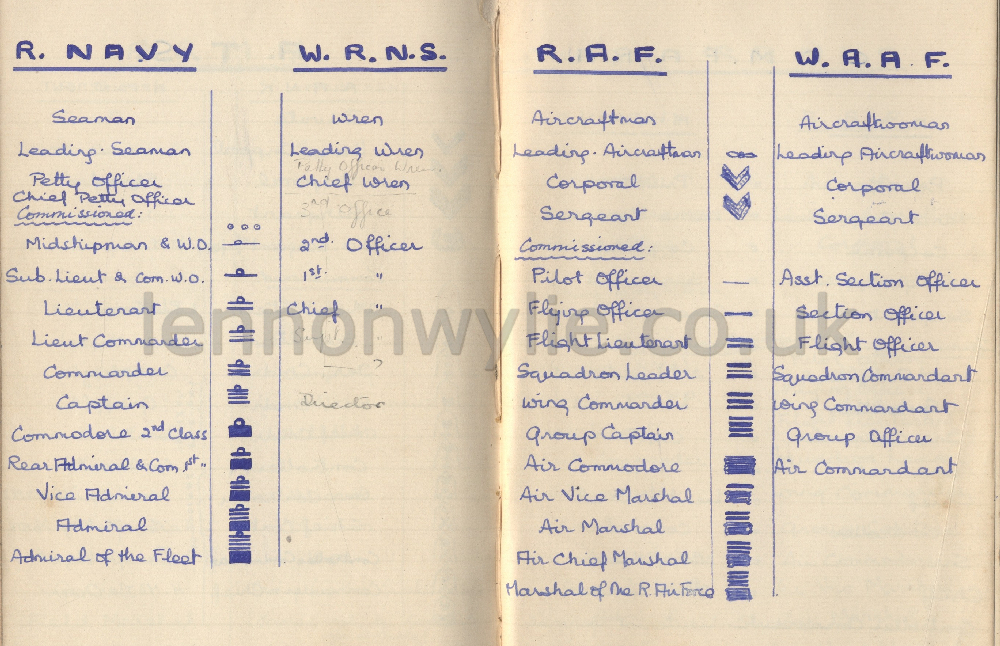 R. NAVY
W.R.N.S.
Seaman
Wren
Leading Seaman
Leading Wren
Petty Officer Wren
Petty Officer
Chief Wren
Chief Petty Officer
3rd Office
Commissioned:
Midshipman & W.O.
2nd Officer
Sub. Lieut & Com. W.O.
1st "
Lieutenant
Chief "
Lieut Commander
"
Commander
— ?
Captain
Director
Commodore 2nd Class
Rear Admiral & Com 1st "
Vice Admiral
Admiral
Admiral of the Fleet
R.A.F.
W.A.A.F.
Aircraftman
Aircraftwoman
Leading Aircraftman
Leading Aircraftwoman
Corporal
Corporal
Sergeart
Sergeart
Commissioned:
Pilot Officer
Asst. Section Officer
Flying Officer
Section Officer
Flight Lieutenant
Flight Officer
Squadron Leader
Squadron Commandant
Wing Commander
Wing Commandant
Group Captain
Group Officer
Air Commodore
Air Commandant
Air Vice Marshal
Air Marshal
Air Chief Marshal
Marshal of the R. Air Force
lennonwylie.co.uk